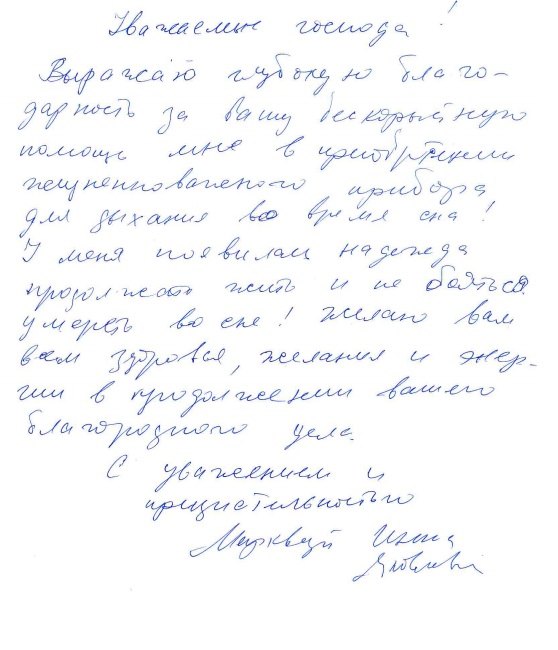 Уважаемые господа!
Выражаю глубокую благо-
дарность за вашу бескорыстную
помощь мне в приобретении
жизненноважного прибора
для дыхания во время сна!
У меня появилась надежда
продолжать жить и не бояться
умереть во сне! Желаю вам
всем здоровья, желания и энер-
гии в продолжении вашего
благородного дела.
С уважением и
признательностью